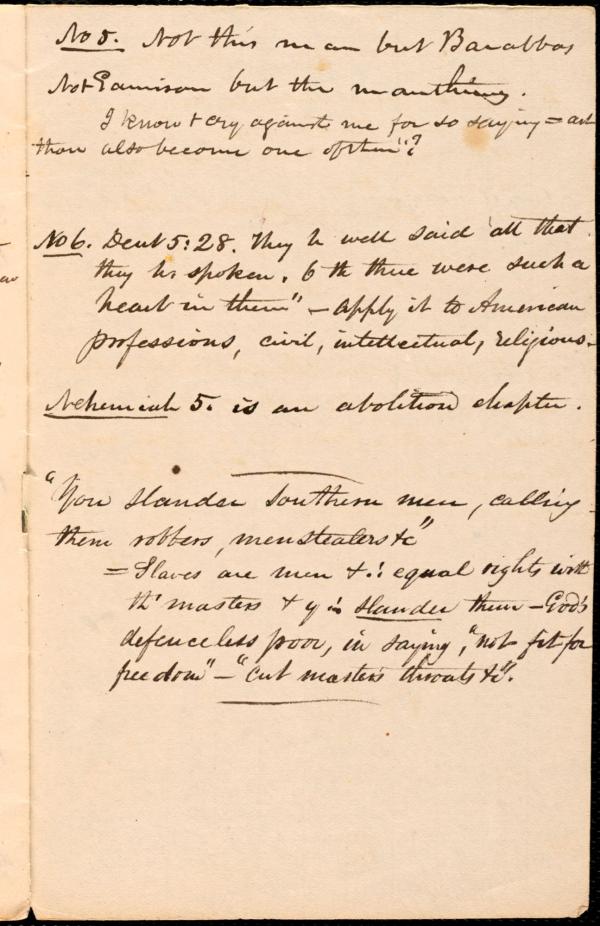 No 5. Not this man but Barabbas
Not Garrison but the manthing.
I know + cry against me for so saying = art
thou also become one of them"?
No 6. Deut 5:28. They h well said all that
they h spoken. O th there were such a
heart in them" – apply it to American
professions, civil, intellectual, religious –
Nehemiah 5. is an abolition chapter.
"You slander Southern men, calling
them robbers, menstealers &c"
= Slaves are men & ∴ equal rights with
th masters & y slander them – God's
defenceless poor, in saying, "not fit for
freedom" – "cut masters throats &c".